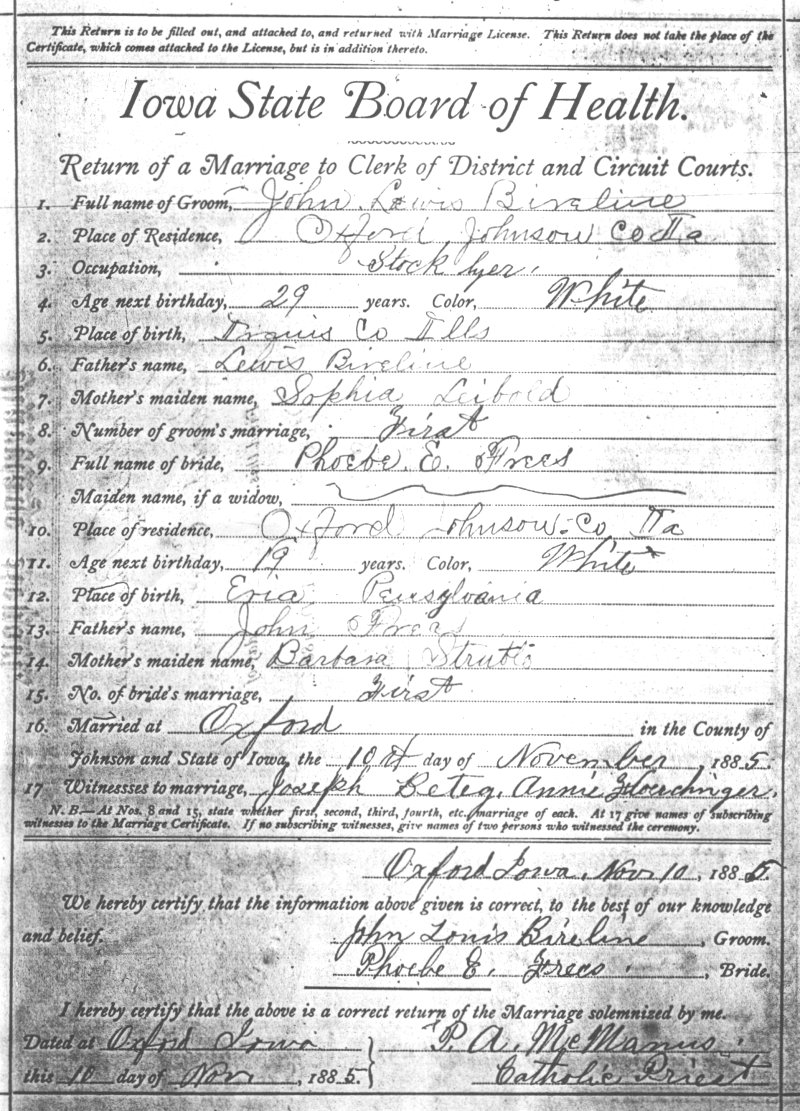 This Return is to be filled out, and attached to, and returned with Marriage License. This Return does not take the place of the
Certificate, which comes attached to the License, but is in addition thereto.
Iowa State Board of Health.
Return of a Marriage to Clerk of District and Circuit Courts.
1. Full name of Groom, John Lewis Bireline
2. Place of Residence, Oxford Johnson Co Ia
3. Occupation, Stock
4. Age next birthday, 29 years. Color, White
5. Place of birth, Co Ills
6. Father's name, Lewis Bireline
7. Mother's maiden name, Sophia Leibold
8. Number of groom's marriage, First
9. Full name of bride, Phoebe. E. Frees
Maiden name, if a widow,
10. Place of residence, Oxford Johnson Co Ia
11. Age next birthday, 19 years. Color, White
12. Place of birth, Eria Pensylvania
13. Father's name, John Frees
14. Mother's maiden name, Barbara
15. No. of bride's marriage, First
16. Married at Oxford in the County of
Johnson and State of Iowa, the 10th day of November, 1885.
17 Witnessses to marriage, Joseph Annie
N. B.—At Nos. 8 and 15, state whether first, second, third, fourth, etc., marriage of each. At 17 give names of subscribing
witnesses to the Marriage Certificate. If no subscribing witnesses, give names of two persons who witnessed the ceremony.
Oxford Iowa, Nov. 10, 1885.
We hereby certify that the information above given is correct, to the best of our knowledge
and belief. John Louis Bireline, Groom.
Phoebe E. Frees, Bride.
I hereby certify that the above is a correct return of the Marriage solemnized by me.
Dated at Oxford Iowa P. A. McManus
this 10 day of Nov, 1885. Catholic Priest